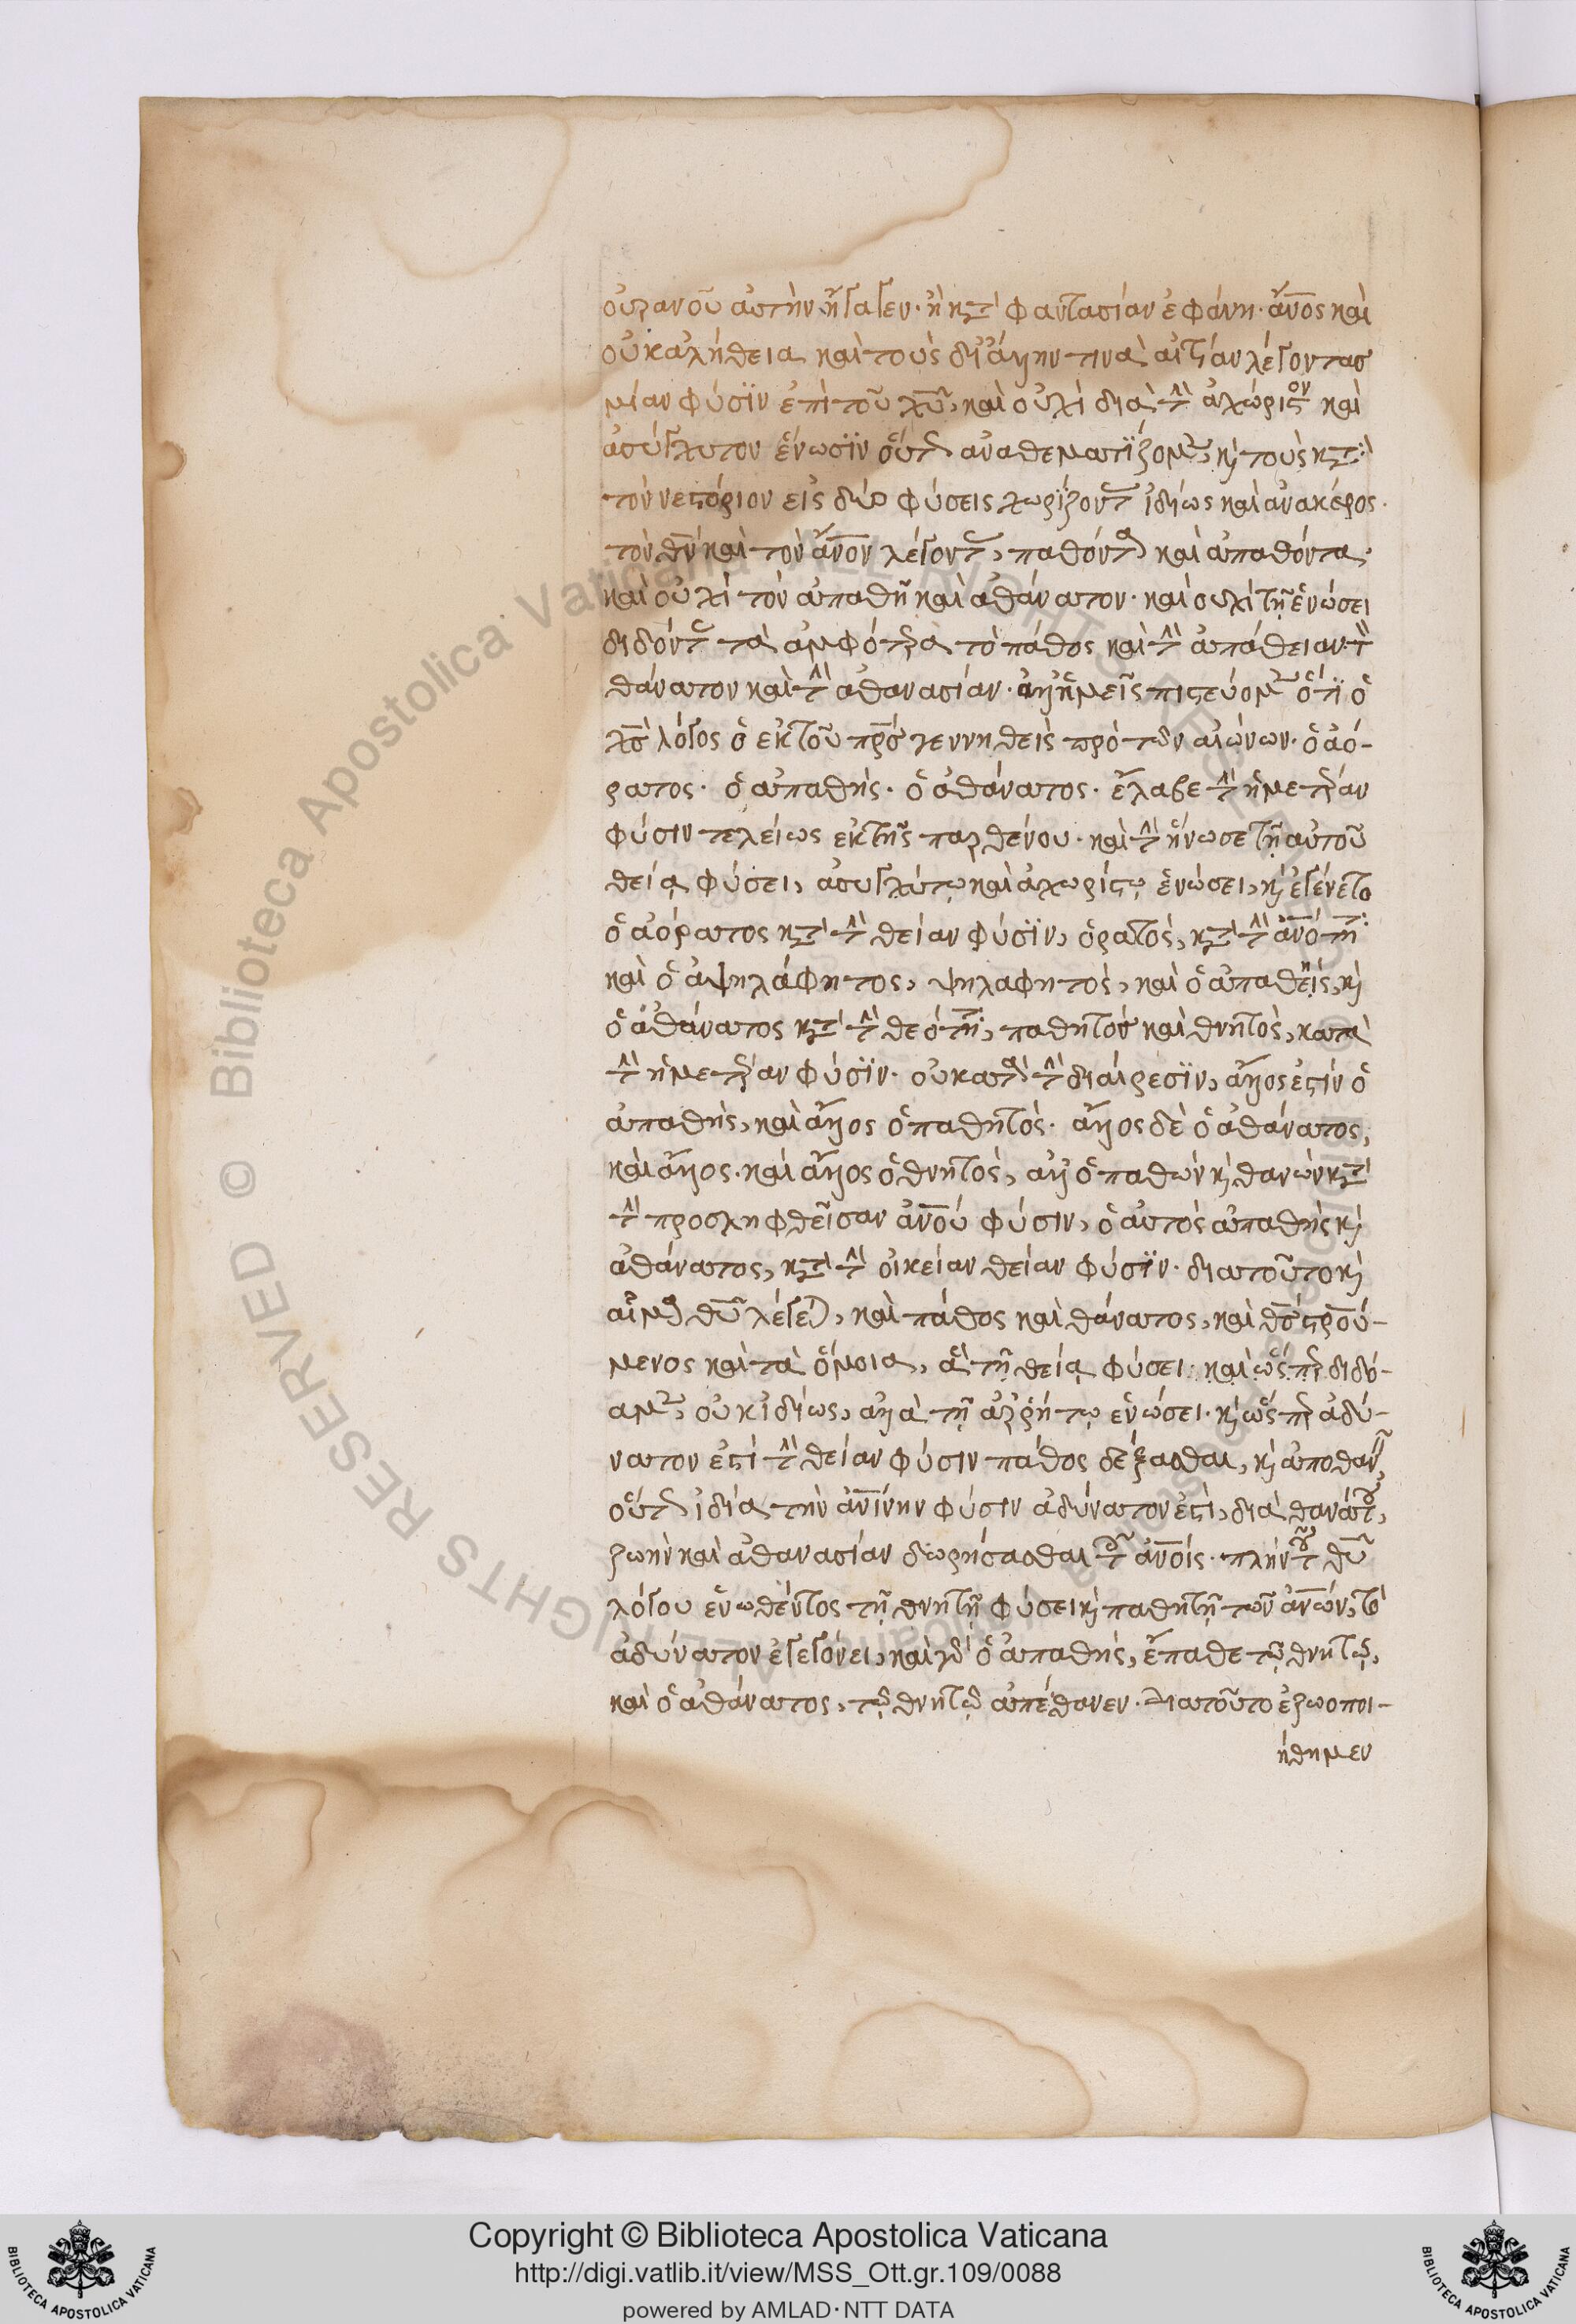 οὐρανοῦ αὐτὴν ἤγαγεν· ἢ κτ̀ φαντασίαν ἐφάνη· ἄνος καὶ
οὐκ ἀλήθεια καὶ τοὺς δι' ἄλλην τινὰ αἰτίαν λέγοντας
μίαν φύσϊν ἐπὶ τοῦ χυ, καὶ οὐχὶ διὰ τὴν ἀχώριστον καὶ
ἀσύγχυτον ἕνωσϊν οὕτως ἀναθεματΐζομεν, καὶ τοὺς κτ̀
τὸν νεστόριον εἰς δύο φύσεις χωρΐζοντας ἰδίως καὶ ἀνακέρος·
τὸν θν καὶ τὸν ἄνον λέγοντας, παθόντα καὶ ἀπαθόντα·
καὶ οὐχὶ τὸν ἀπαθῆ καὶ ἀθάνατον· καὶ οὐχὶ τῇ ἑνώσει
διδόντες τὰ ἀμφότερα τὸ πάθος καὶ τὴν ἀπάθειαν· τὸν
θάνατον καὶ τὴν ἀθανασίαν· ἀλλ' ἡμεῖς πιστεύομεν ὅτϊ ὁ
χς λόγος ὁ ἐκ τοῦ πρς γεννηθεὶς πρὸ τῶν αἰώνων· ὁ ἀό-
ρατος· ὁ ἀπαθής· ὁ ἀθάνατος· ἔλαβε τὴν ἡμετέραν
φύσιν τελείως ἐκ τῆς παρθένου· καὶ τὴν ἥνωσε τῇ αὐτοῦ
θείᾳ φύσει, ἀσυγχύτῳ καὶ ἀχωρίστῳ ἑνώσει, καὶ ἐγένετο
ὁ ἀόρατος κτ̀ τὴν θείαν φύσϊν, ὁρατὸς, κτ̀ τὴν ἀνότητα
καὶ ὁ ἀψηλάφητος, ψηλαφητὸς, καὶ ὁ ἀπαθὴς, καὶ
ὁ ἀθάνατος κτ̀ τὴν θεότητα, παθητὸς καὶ θνητὸς, κατὰ
τὴν ἡμετέραν φύσϊν· οὐ κατὰ τὴν διαίρεσϊν, ἄλλος ἐστὶν ὁ
ἀπαθὴς, καὶ ἄλλος ὁ παθητὸς· ἄλλος δὲ ὁ ἀθάνατος,
καὶ ἄλλος· καὶ ἄλλος ὁ θνητὸς, ἀλλ' ὁ παθὼν καὶ θανὼν κτ̀
τὴν προσληφθεῖσαν ἀνου φύσιν, ὁ αὐτὸς ἀπαθὴς καὶ
ἀθάνατος, κτ̀ τὴν οἰκείαν θείαν φύσϊν· διατοῦτο καὶ
αἷμα θυ λέγεται, καὶ πάθος καὶ θάνατος, καὶ θς στρού-
μενος καὶ τὰ ὅμοια, ἃ τῇ θείᾳ φύσει· καὶ ὥσπερ διδό-
αμεν, οὐκ ἰδίως, ἀλλὰ τῇ ἀρρήτῳ ἑνώσει· καὶ ὥσπερ ἀδύ-
νατον ἐστὶ τὴν θείαν φύσιν πάθος δέξασθαι, καὶ ἀποθανεῖν,
οὕτως ἰδία τὴν ἀνίνην φύσιν ἀδύνατον ἐστὶ, διὰ θανάτου,
ζωὴν καὶ ἀθανασίαν δωρήσασθαι τοῖς ἀνοις· πλὴν τοῦ θυ
λόγου ἑνωθέντος τῇ θνητῇ φύσει καὶ παθητῇ τῶν ἀνων, τὸ
ἀδύνατον ἐγεγόνει, καὶ γὰρ ὁ ἀπαθὴς, ἔπαθε τῷ θνητῷ,
καὶ ὁ ἀθάνατος, τῷ θνητῷ ἀπέθανεν· Διατοῦτο ἐζωοποι-
ήθημεν
Copyright © Biblioteca Apostolica Vaticana
http://digi.vatlib.it/view/MSS_Ott.gr.109/0088
powered by AMLAD·NTT DATA
BIBLIOTECA APOSTOLICA VATICANA
BIBLIOTECA APOSTOLICA VATICANA
Biblioteca Apostolica Vaticana ALL RIGHTS RESERVED ©